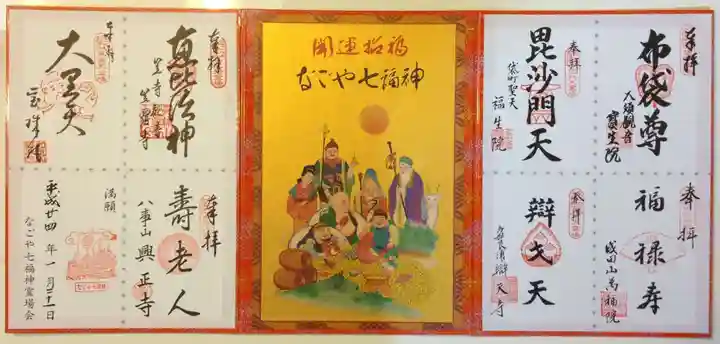 奉拝
布袋尊
大須観音
宝生院
奉拝
毘沙門天
袋町聖天
福生院
奉拝
福禄寿
成田山萬福院
奉拝
辯才天
辯天寺
開運招福
なごや七福神
奉拝
恵比須神
笠寺観音
笠覆寺
奉拝
大黒天
宝珠院
奉拝
寿老人
八事山興正寺
満願
平成廿四年一月二十一日
なごや七福神霊場会